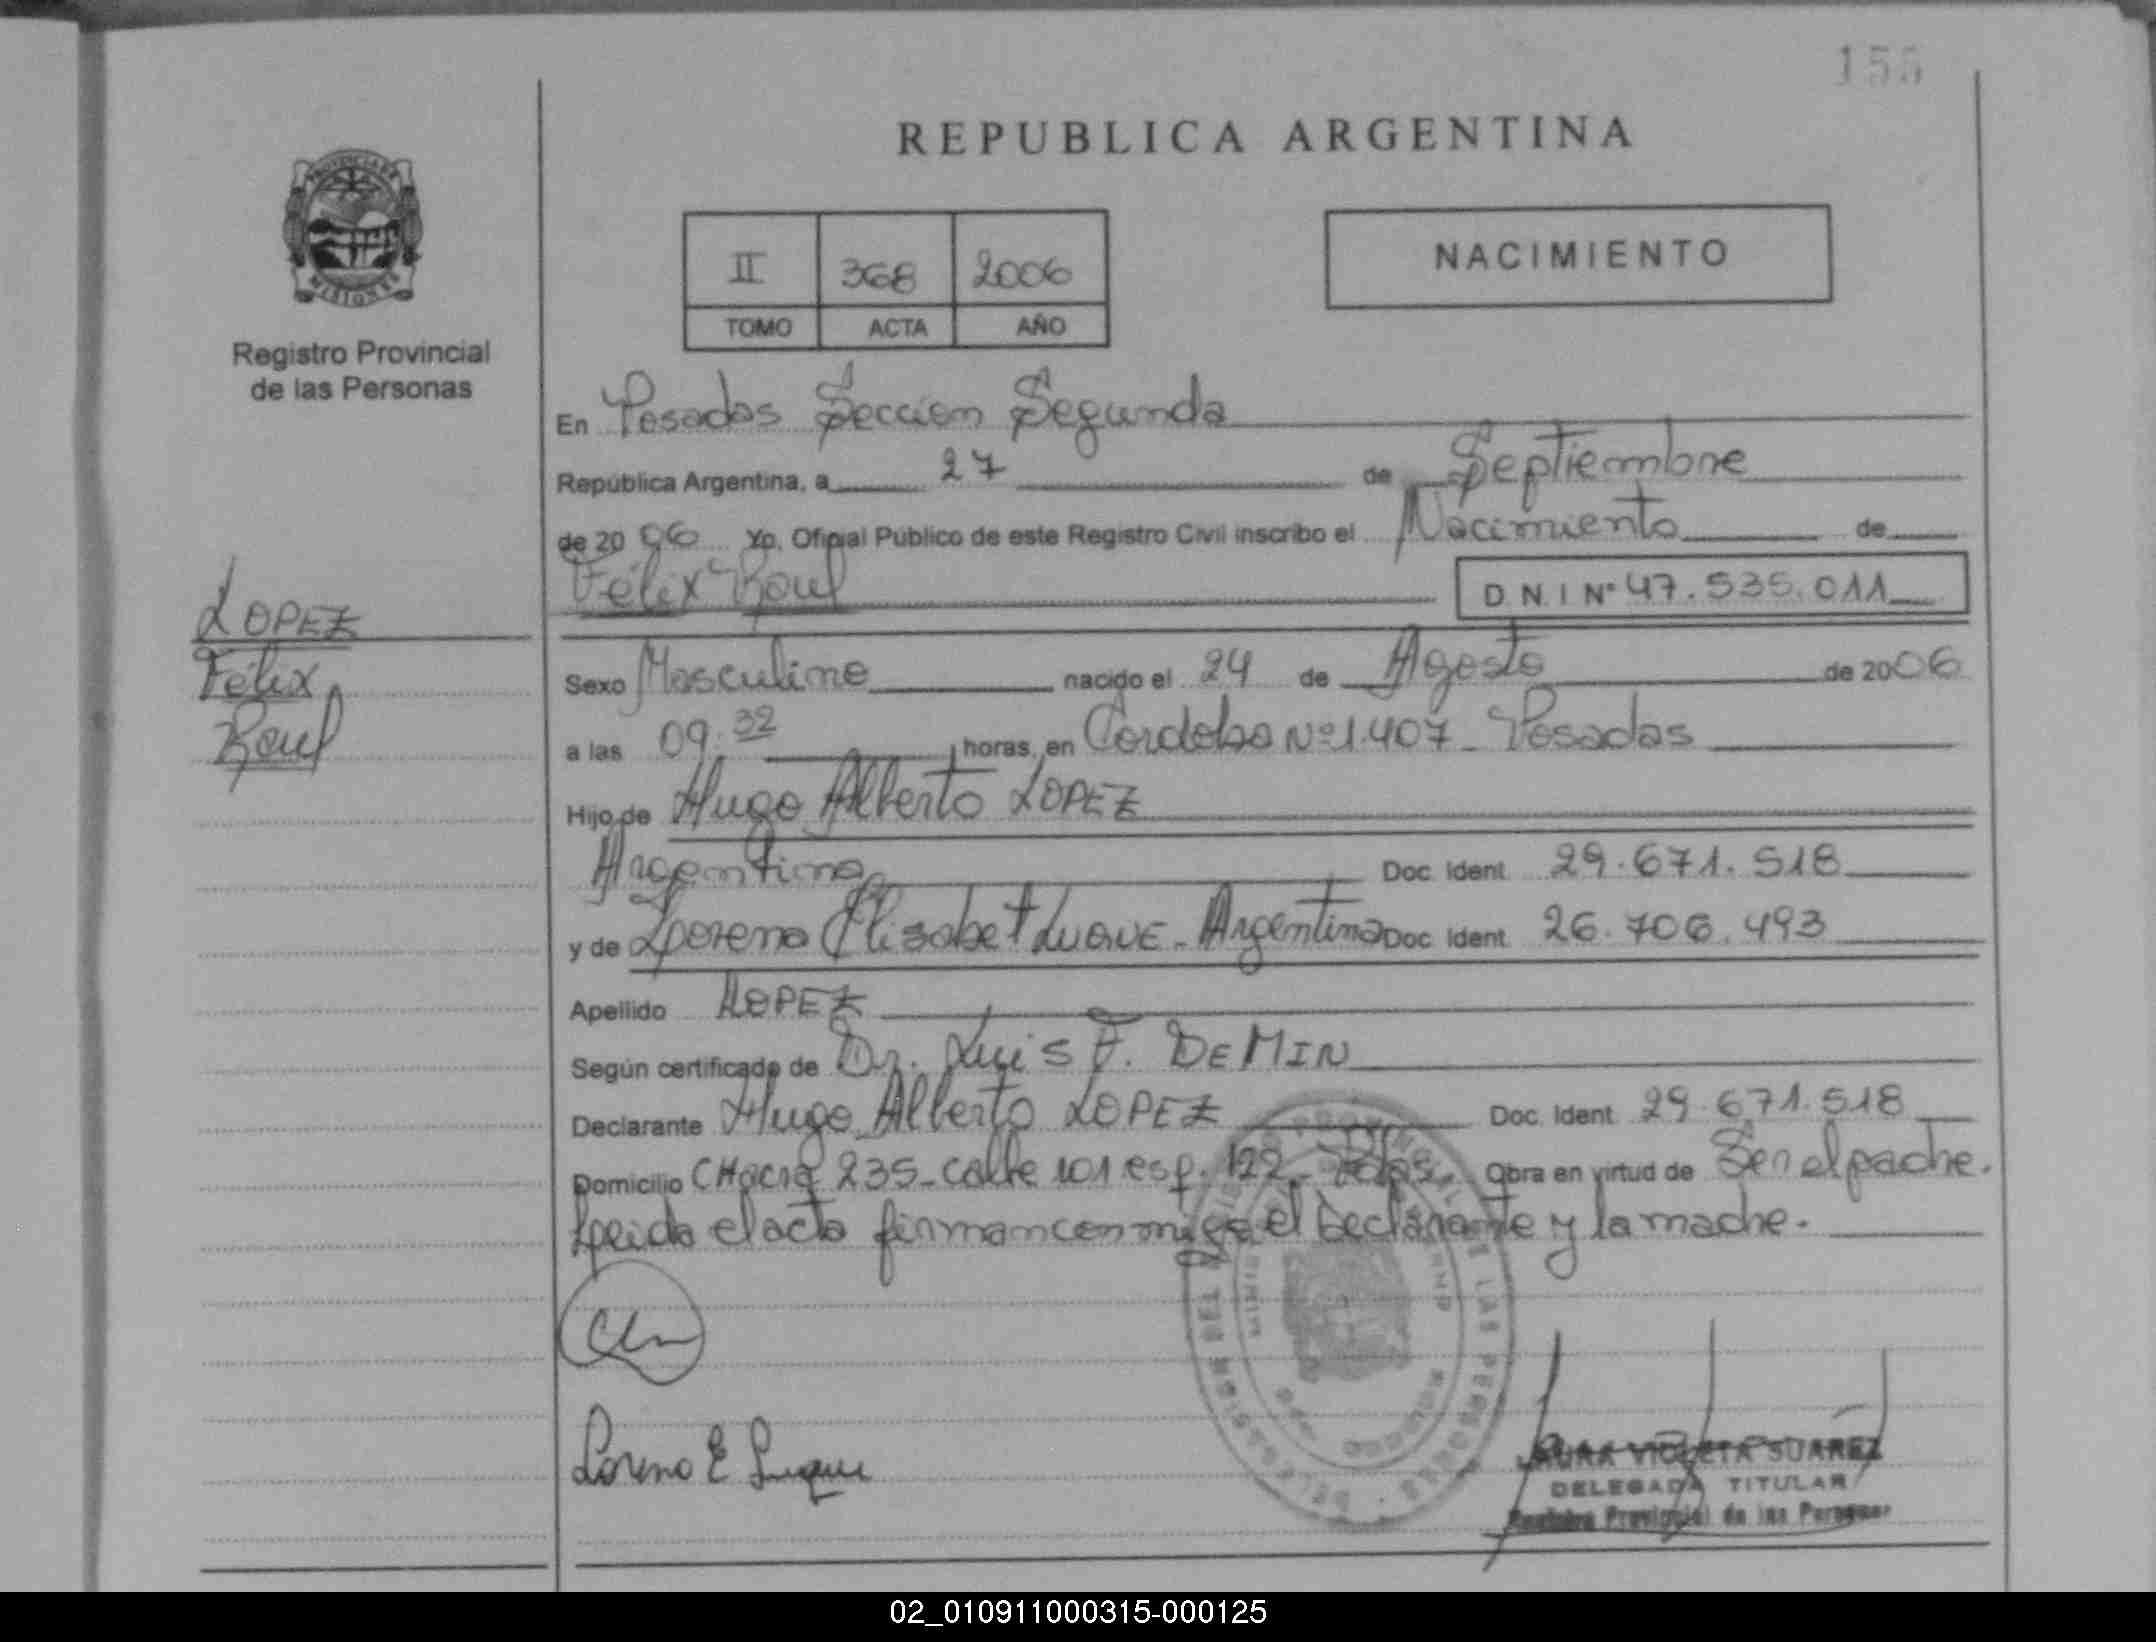 155
REPUBLICA ARGENTINA
PROVINCIA DE MISIONES
Registro Provincial
de las Personas
II 368 2006
TOMO ACTA AÑO
NACIMIENTO
En Posadas Seccion Segunda
República Argentina, a 27 de Septiembre
de 2006 Yo, Oficial Público de este Registro Civil inscribo el Nacimiento de
Félix Raul D.N.I Nº 47.535.011
LOPEZ
Félix
Raul
Sexo Masculino nacido el 24 de Agosto de 2006
a las 09:32 horas, en Cordoba Nº 1.407 - Posadas
Hijo de Hugo Alberto LOPEZ
Argentino Doc. Ident. 29.671.518
y de Lorena Elizabet LUQUE - Argentina Doc. Ident. 26.706.493
Apellido LOPEZ
Según certificado de Dr. Luis F. DE MIN
Declarante Hugo Alberto LOPEZ Doc. Ident. 29.671.518
Domicilio CHacra 235 - calle 101 esq. 122 - Pdas. Obra en virtud de Ser el padre.
Leida el acta firman conmigo el Declarante y la madre.
Lorena E Luque
LAURA VIOLETA SUAREZ
DELEGADA TITULAR
Registro Provincial de las Personas
02_010911000315-000125